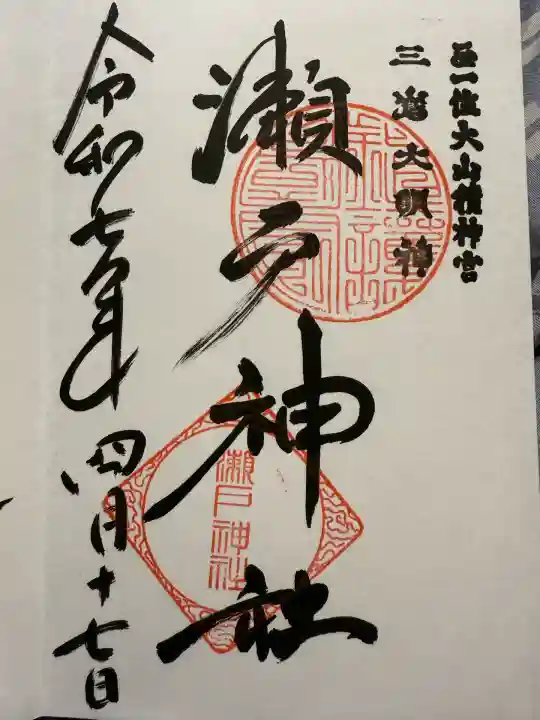 正一位大山積神宮
三嶌大明神
瀬戸神社
瀬戸神社
令和七年四月十七日